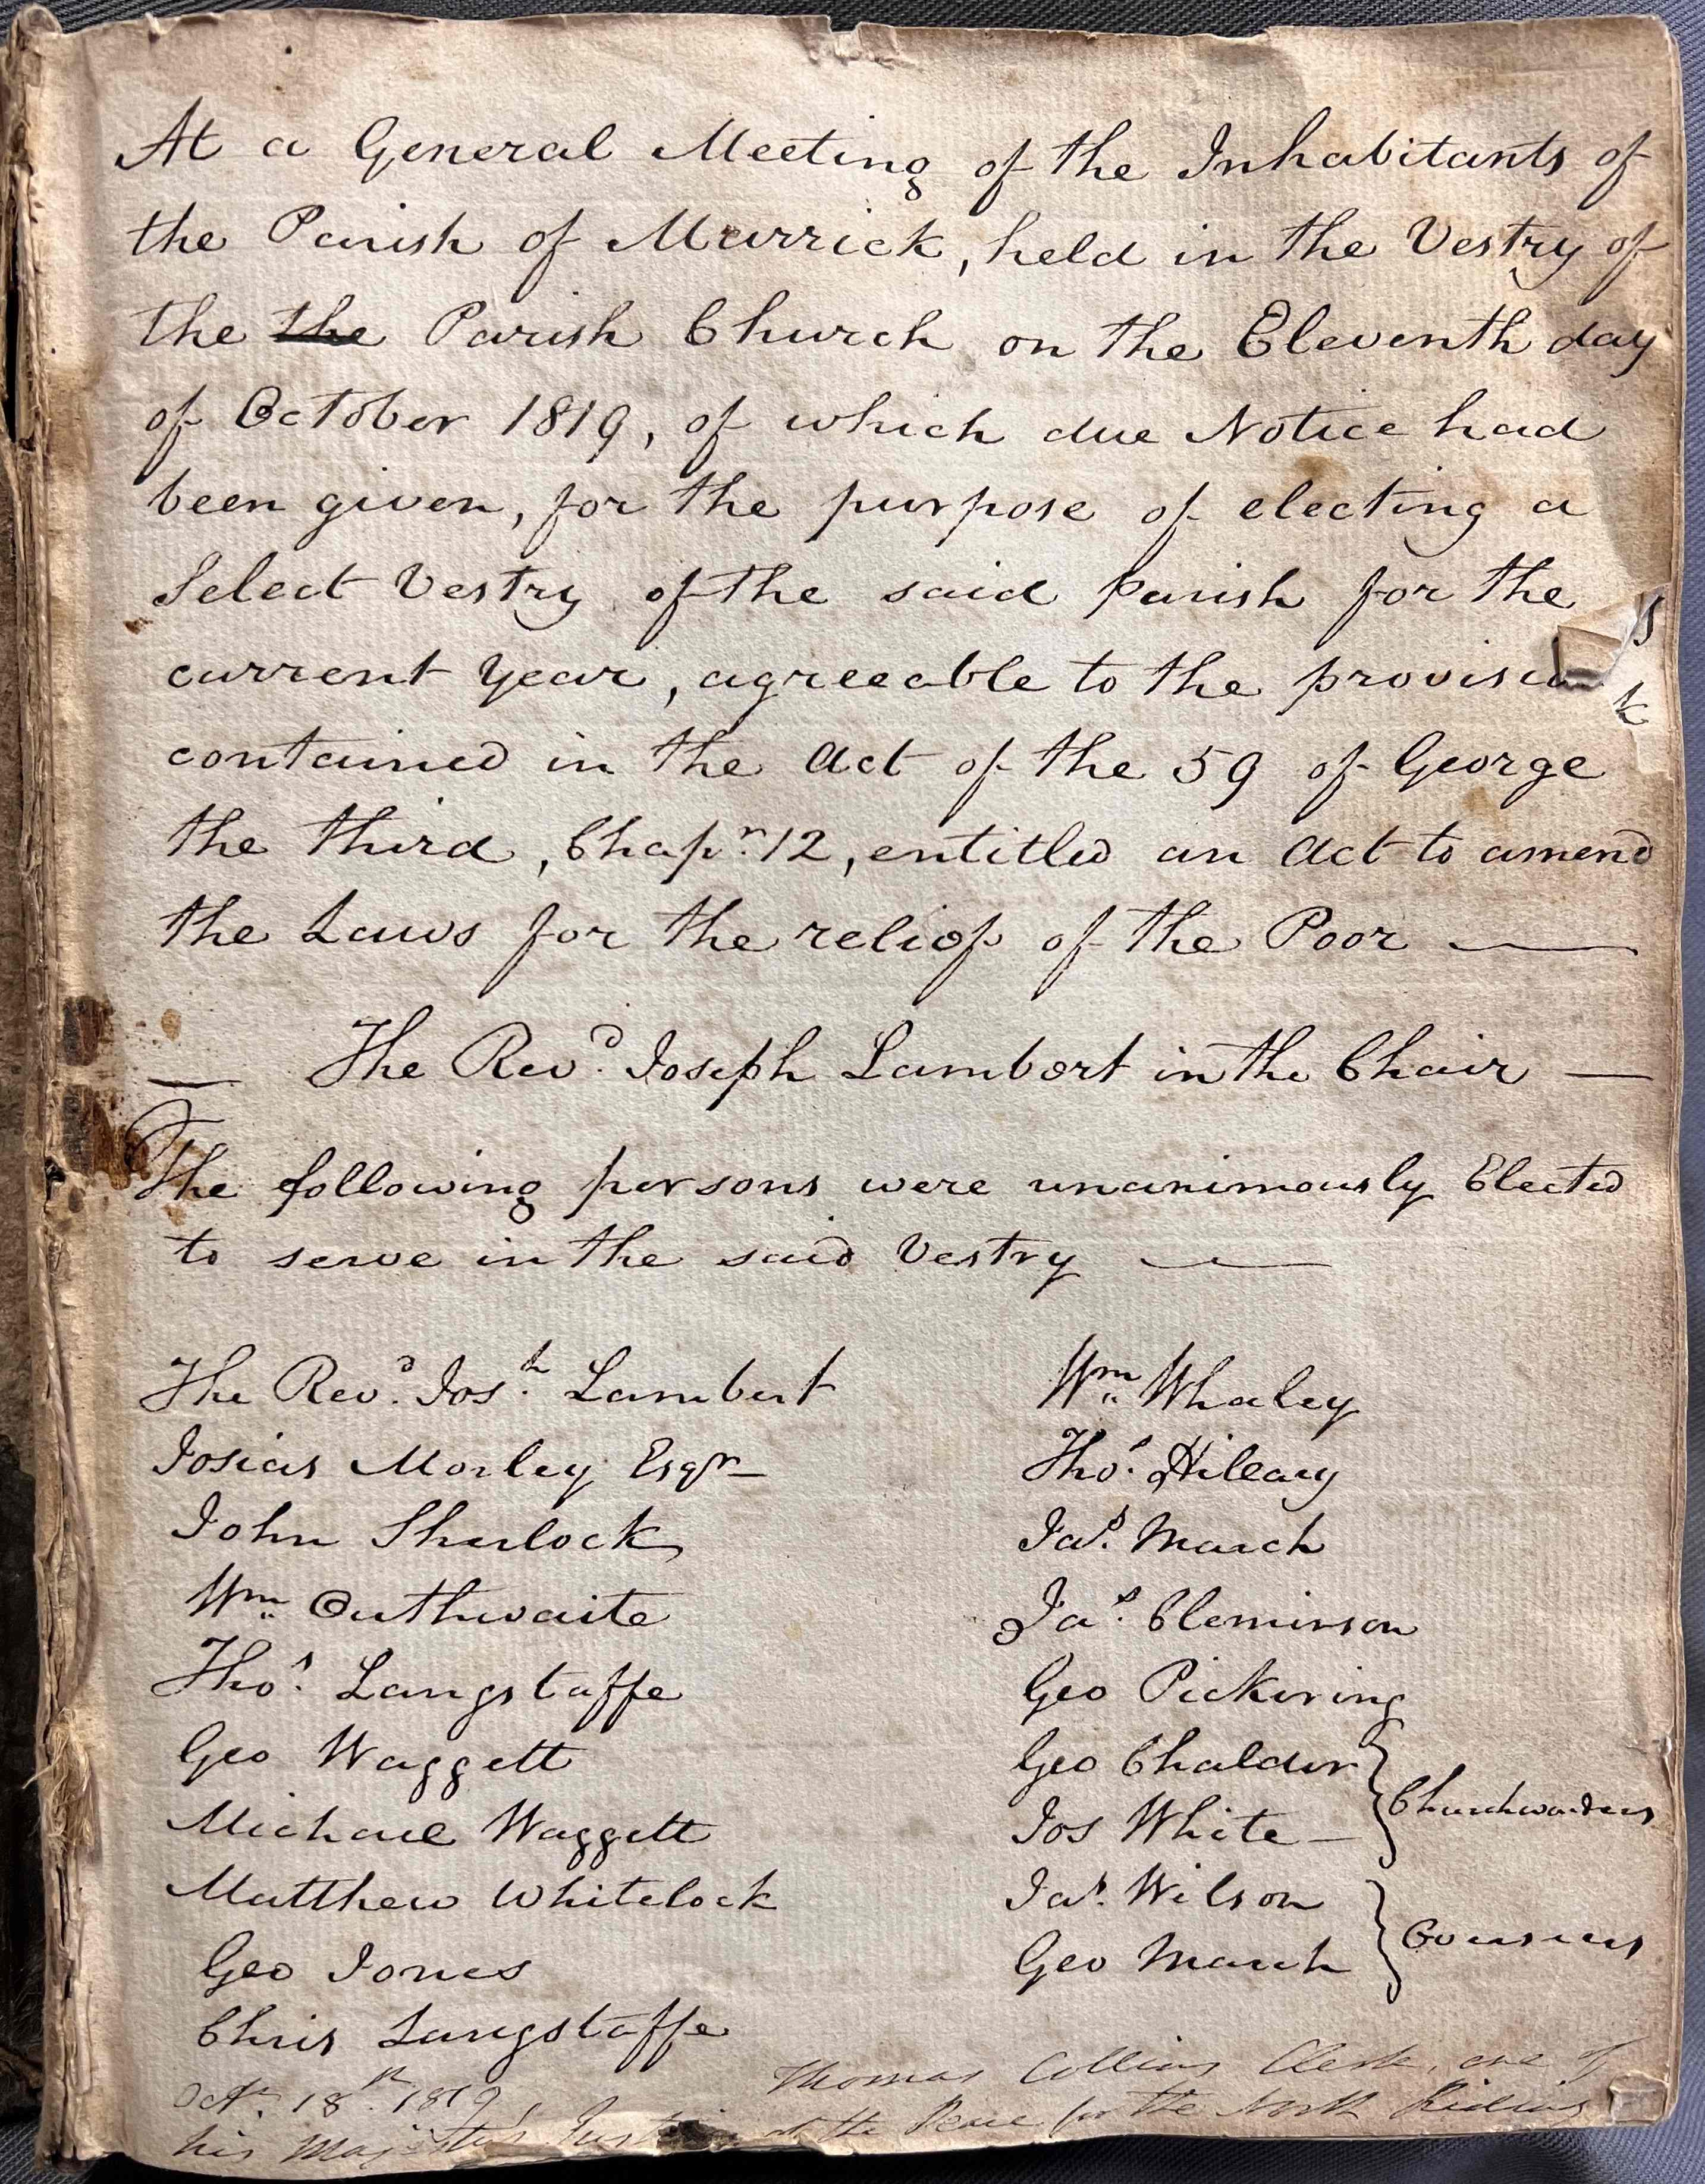 At a General Meeting of the Inhabitants of
the Parish of Marrick, held in the Vestry of
the the Parish Church on the Eleventh day
of October 1819, of which due Notice had
been given, for the purpose of electing a
Select Vestry of the said parish for the
current Year, agreeable to the provisio
contained in the Act of the 59 of George
the third, Chapr. 12, entitled an Act to amend
the Laws for the relief of the Poor —
— The Revd. Joseph Lambert in the Chair —
The following persons were unanimously Elected
to serve in the said Vestry —
The Revd. Josh. Lambert
Josias Morley Esqr
John Sherlock
Wm. Outhwaite
Thos. Langstaffe
Geo Waggett
Michael Waggett
Matthew Whitelock
Geo Jones
Chris Langstaffe
Wm. Whaley
Thos. Hilleary
Jas. March
Jas. Cleminson
Geo Pickering
Geo Chalder
Jos White — } Churchwardens
Jas. Wilson
Geo March } Overseers
Octr. 18th. 1819, Thomas Collins Clerk, one of
his Majesty's Justices of the Peace for the North Riding